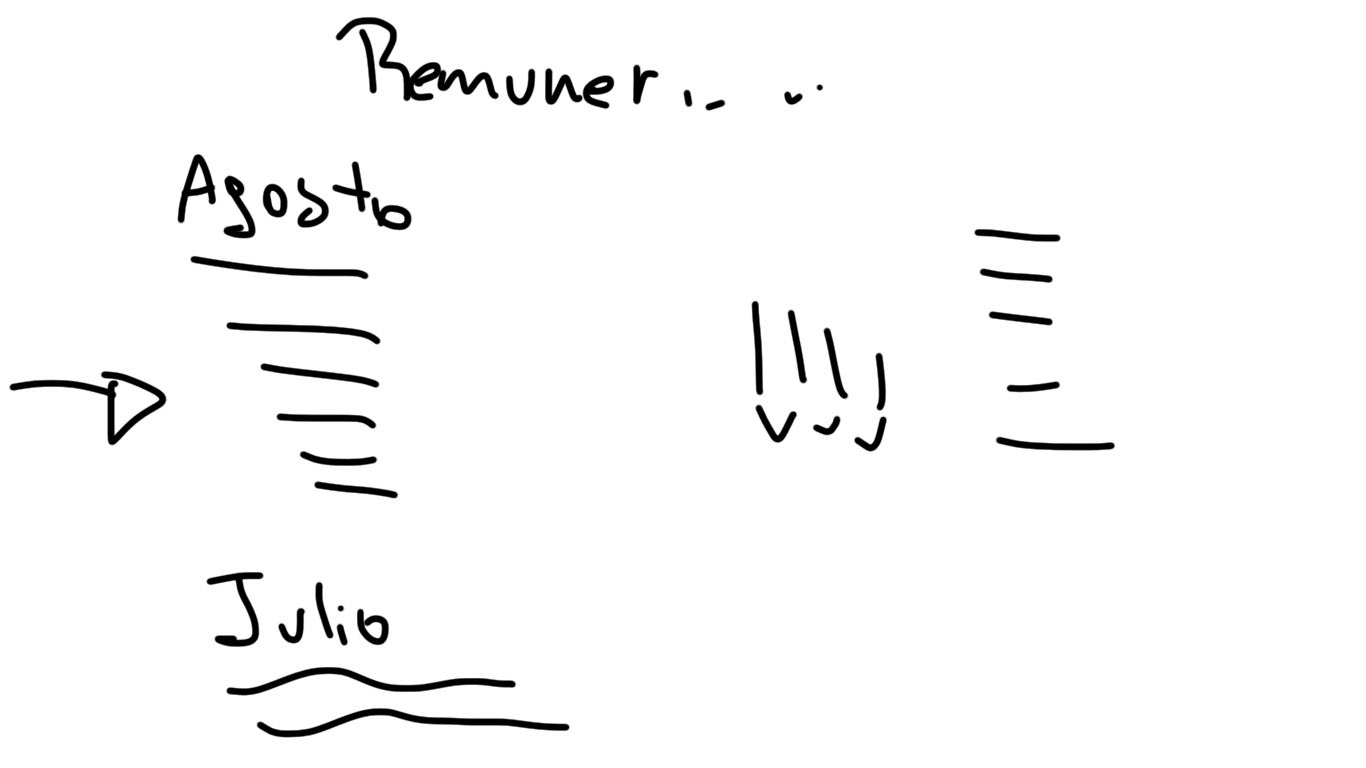 Remuner...
Agosto
Julio